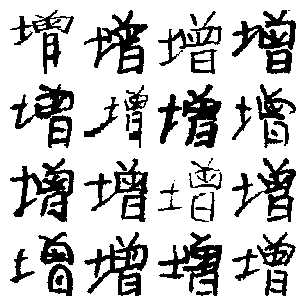 增增增增
增增增增
增增增增
增增增增